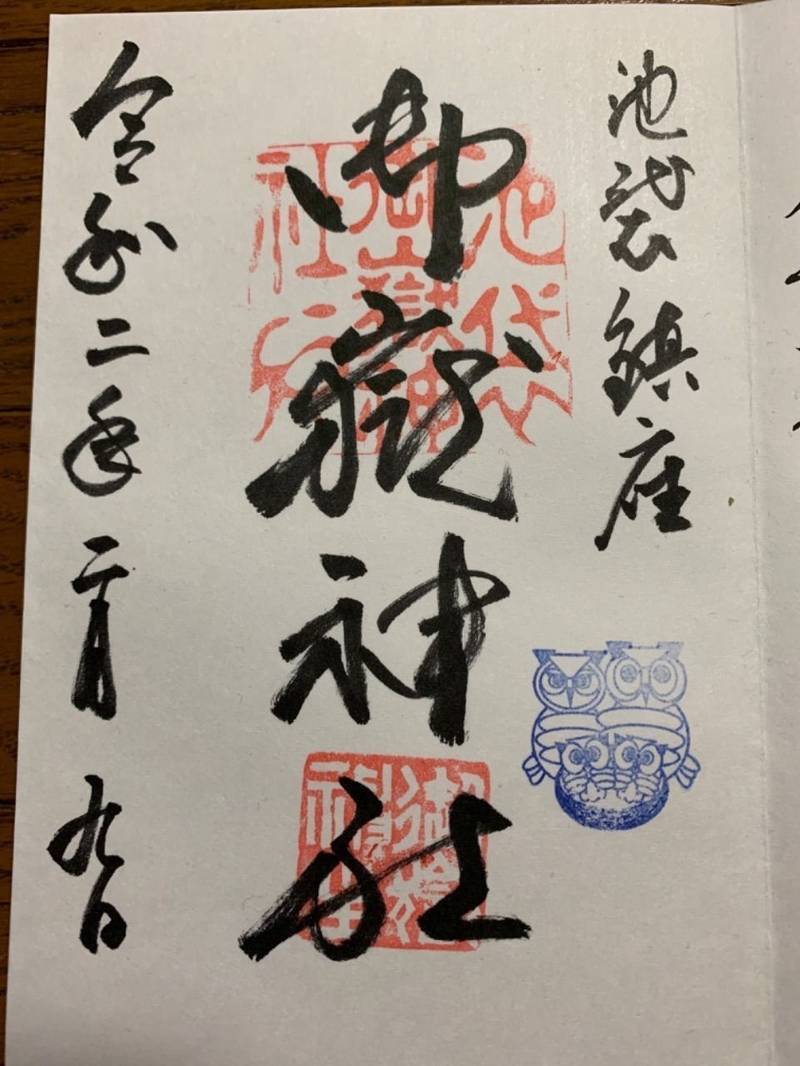 池袋鎮座
御嶽神社
令和二年二月九日
池袋
御嶽神
社